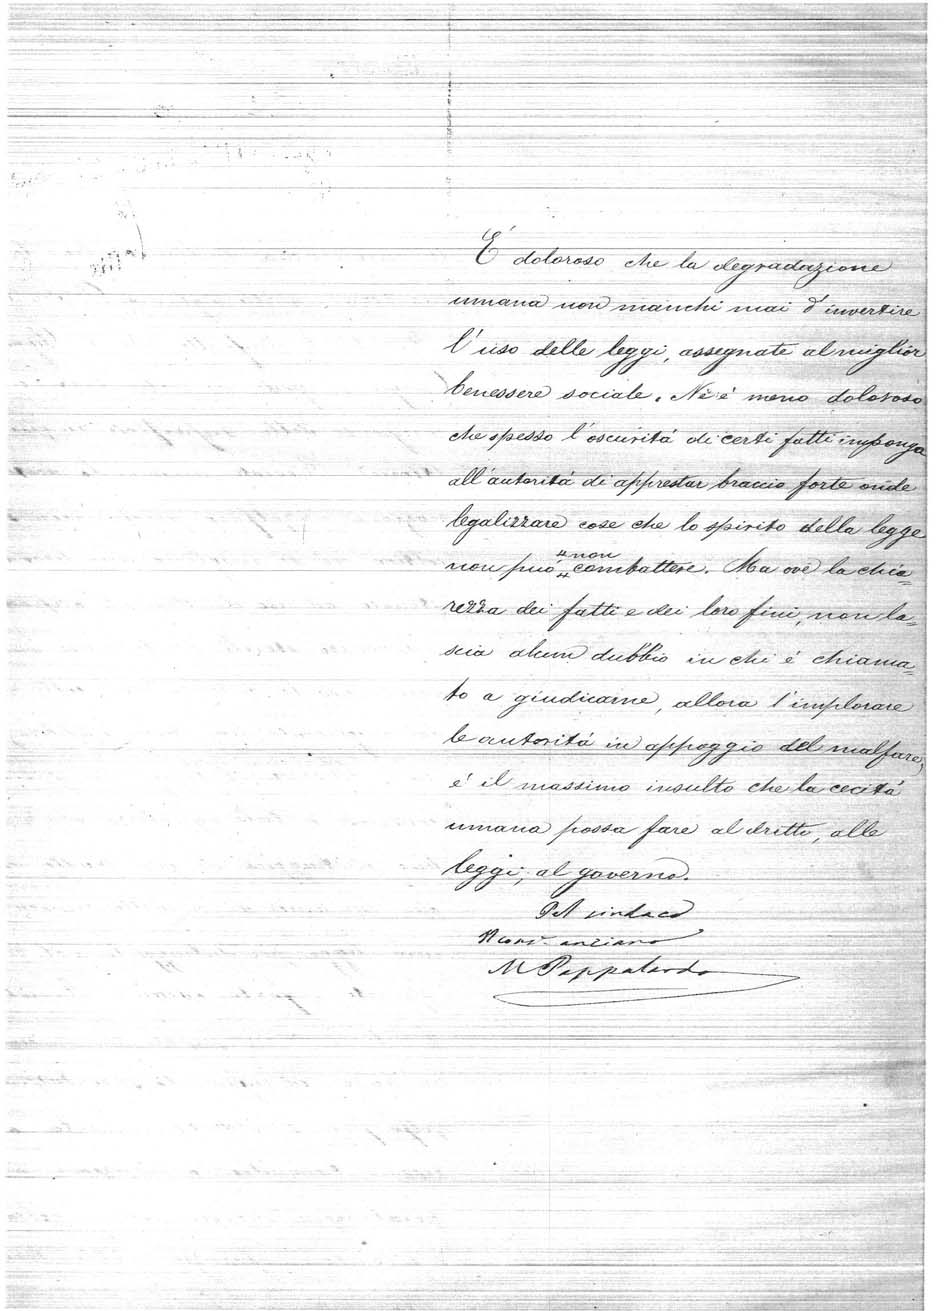 É doloroso che la degradazione
umana non manchi mai d'invertire
l'uso delle leggi, assegnate al miglior
benessere sociale. Nè é meno doloroso
che spesso l'oscuritá di certi fatti imponga
all'autoritá di apprestar braccio forte onde
legalizzare cose che lo spirito della legge
non puó non combattere. Ma ove la chia=
rezza dei fatti e dei loro fini, non la=
scia alcun dubbio in chi é chiama=
to a giudicarne, allora l'implorare
le autoritá in appoggio del malfare,
é il massimo insulto che la cecitá
umana possa fare al dritto, alle
leggi, al governo.
Pel sindaco
Il cons. anziano
M Pappalardo